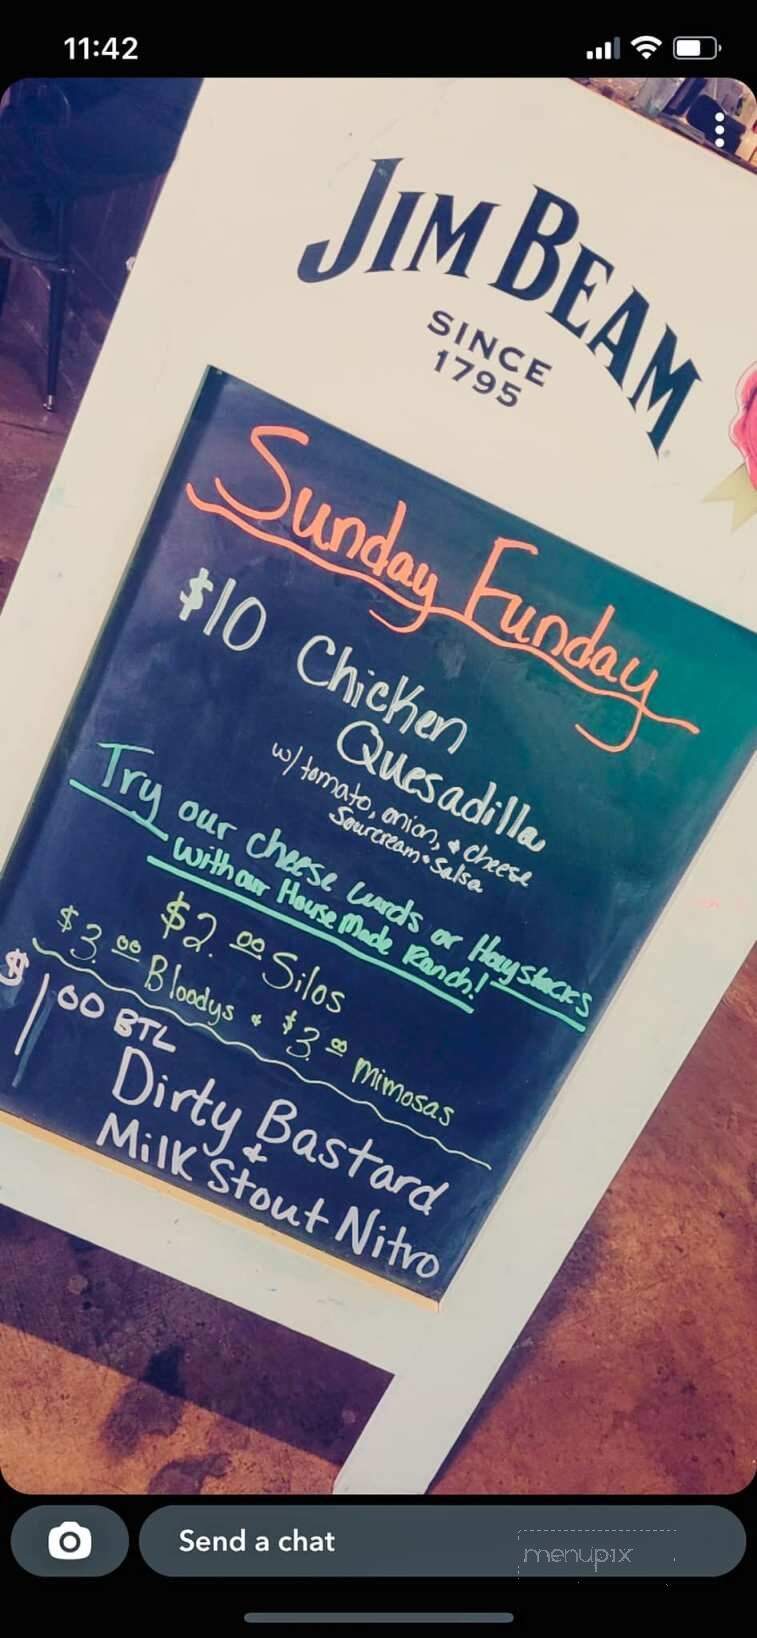 11:42
JIM BEAM
SINCE
1795
Sunday Funday
$10 Chicken
Quesadilla
w/ tomato, onion, & cheese
Sourcream & Salsa
Try our cheese curds or Haystacks
with our House Made Ranch!
$2.00 Silos
$3.00 Bloodys & $3.00 mimosas
$1.00 BTL
Dirty Bastard
&
Milk Stout Nitro
Send a chat
menupix